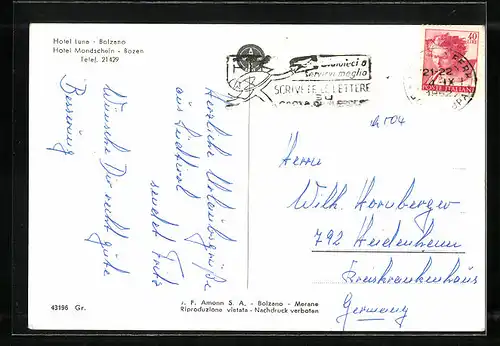 Hotel Luna - Bolzano
Hotel Mondschein - Bozen
Telef. 21429
Herzliche Urlaubsgrüße
aus Südtirol
sendet Fritz
Wünsche Dir recht gute
Besserung
43196 Gr.
J. F. Amonn S. A. - Bolzano - Merano
Riproduzione vietata - Nachdruck verboten
servirvi meglio
SCRIVETE LE LETTERE
21-22
40
LIRE
POSTE ITALIANE
Herrn
Wilh. Hornberger
792 Heidenheim
Kreiskrankenhaus
Germany